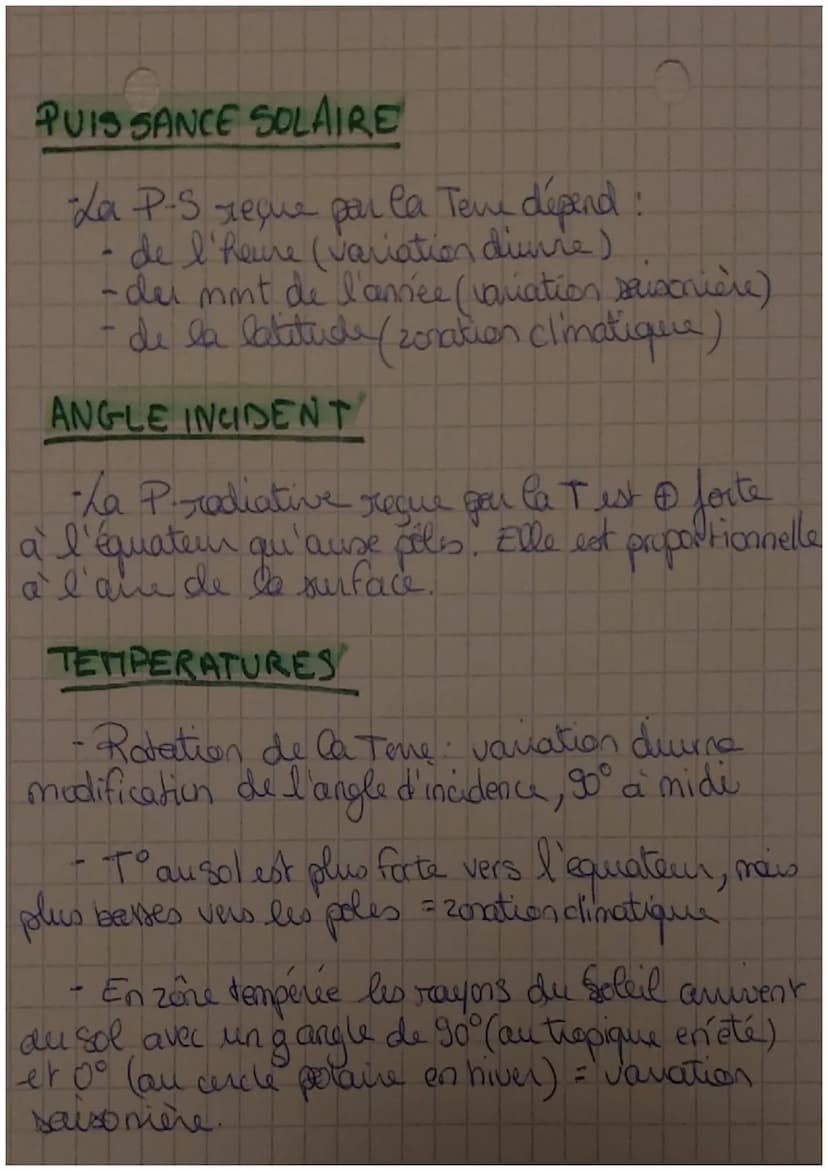 PUISSANCE SOLAIRE
-La P-S reçue par la Terre dépend :
- de l'heure (variation diurne)
- du mmt de l'année (variation saisonière)
- de la latitude (zonation climatique)
ANGLE INCIDENT
-La P. radiative reçue par la T est ⊕ forte
à l'équateur qu'aux pôles. Elle est proportionnelle
à l'aire de la surface.
TEMPERATURES
- Rotation de la Terre : variation diurne
modification de l'angle d'incidence, 90° à midi
- T° au sol est plus forte vers l'équateur, mais
plus basses vers les poles = zonation climatique
- En zône tempérée les rayons du Soleil arrivent
au sol avec un angle de 90° (au tropique en été)
et 0° (au cercle polaire en hiver) = variation
saisonière.